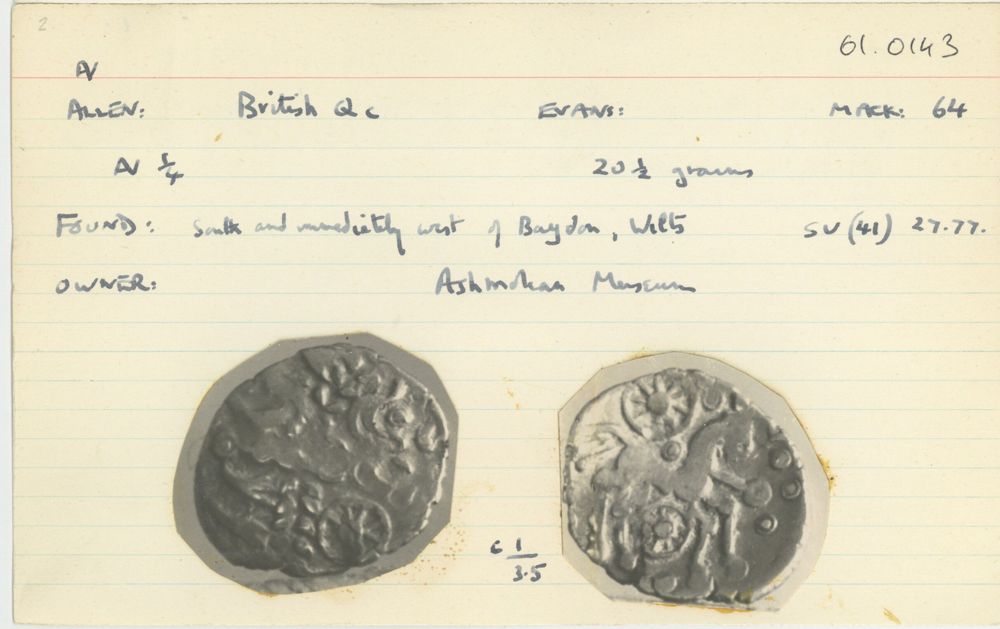 2
61.0143
AV
ALLEN: British Qc EVANS: MACK: 64
AV 1/4 20 1/2 grains
FOUND: South and immediately west of Baydon, Wilts SU (41) 27.77.
OWNER: Ashmolean Museum
c 1/3.5